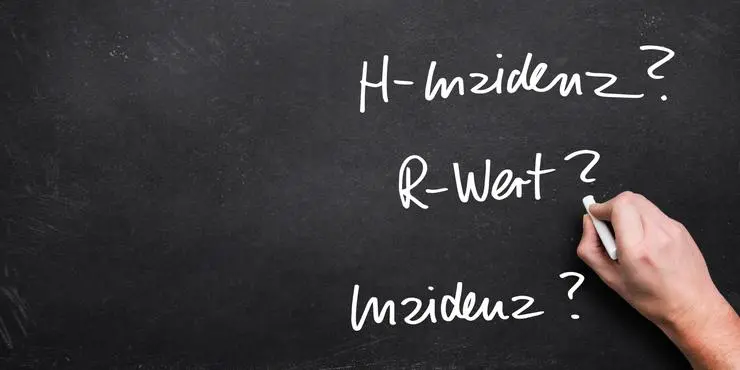 H-Inzidenz?
R-Wert?
Inzidenz?